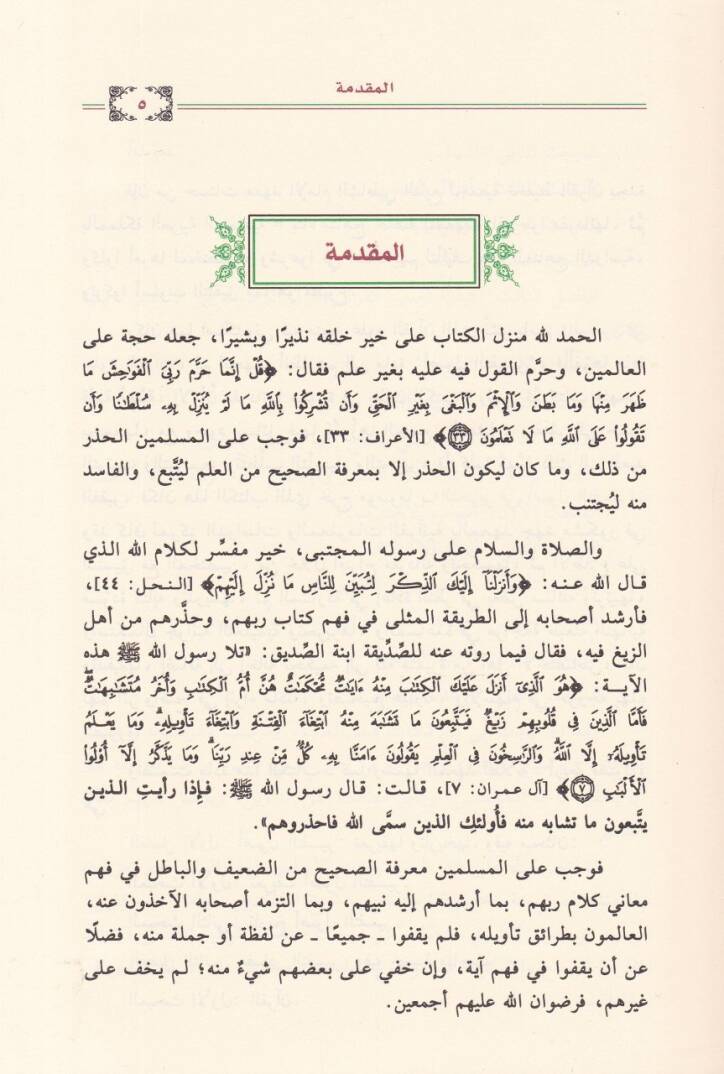 المقدمة
٥
المقدمة
الحمد لله منزل الكتاب على خير خلقه نذيرًا وبشيرًا، جعله حجة على
العالمين، وحرَّم القول فيه عليه بغير علم فقال: ﴿قُلْ إِنَّمَا حَرَّمَ رَبِّيَ الْفَوَٰحِشَ مَا
ظَهَرَ مِنْهَا وَمَا بَطَنَ وَالْإِثْمَ وَالْبَغْيَ بِغَيْرِ الْحَقِّ وَأَن تُشْرِكُوا۟ بِاللَّهِ مَا لَمْ يُنَزِّلْ بِهِۦ سُلْطَٰنًا وَأَن
تَقُولُوا۟ عَلَى اللَّهِ مَا لَا تَعْلَمُونَ ٣٣﴾ [الأعراف: ٣٣]، فوجب على المسلمين الحذر
من ذلك، وما كان ليكون الحذر إلا بمعرفة الصحيح من العلم ليُتَّبع، والفاسد
منه ليُجتنب.
والصلاة والسلام على رسوله المجتبى، خير مفسِّر لكلام الله الذي
قال الله عنه: ﴿وَأَنزَلْنَآ إِلَيْكَ الذِّكْرَ لِتُبَيِّنَ لِلنَّاسِ مَا نُزِّلَ إِلَيْهِمْ﴾ [النحل: ٤٤]،
فأرشد أصحابه إلى الطريقة المثلى في فهم كتاب ربهم، وحذَّرهم من أهل
الزيغ فيه، فقال فيما روته عنه للصِّدِّيقة ابنة الصِّديق: «تلا رسول الله ﷺ هذه
الآية: ﴿هُوَ الَّذِىٓ أَنزَلَ عَلَيْكَ الْكِتَٰبَ مِنْهُ ءَايَٰتٌ مُّحْكَمَٰتٌ هُنَّ أُمُّ الْكِتَٰبِ وَأُخَرُ مُتَشَٰبِهَٰتٌ
فَأَمَّا الَّذِينَ فِى قُلُوبِهِمْ زَيْغٌ فَيَتَّبِعُونَ مَا تَشَٰبَهَ مِنْهُ ابْتِغَآءَ الْفِتْنَةِ وَابْتِغَآءَ تَأْوِيلِهِۦ وَمَا يَعْلَمُ
تَأْوِيلَهُۥٓ إِلَّا اللَّهُ وَالرَّٰسِخُونَ فِى الْعِلْمِ يَقُولُونَ ءَامَنَّا بِهِۦ كُلٌّ مِّنْ عِندِ رَبِّنَا وَمَا يَذَّكَّرُ إِلَّآ أُو۟لُوا۟
الْأَلْبَٰبِ ٧﴾ [آل عمران: ٧]، قالت: قال رسول الله ﷺ: فإذا رأيتِ الذين
يتَّبعون ما تشابه منه فأُولئكِ الذين سمَّى الله فاحذروهم».
فوجب على المسلمين معرفة الصحيح من الضعيف والباطل في فهم
معاني كلام ربهم، بما أرشدهم إليه نبيهم، وبما التزمه أصحابه الآخذون عنه،
العالمون بطرائق تأويله، فلم يقفوا ـ جميعًا ـ عن لفظة أو جملة منه، فضلًا
عن أن يقفوا في فهم آية، وإن خفي على بعضهم شيءٌ منه؛ لم يخف على
غيرهم، فرضوان الله عليهم أجمعين.